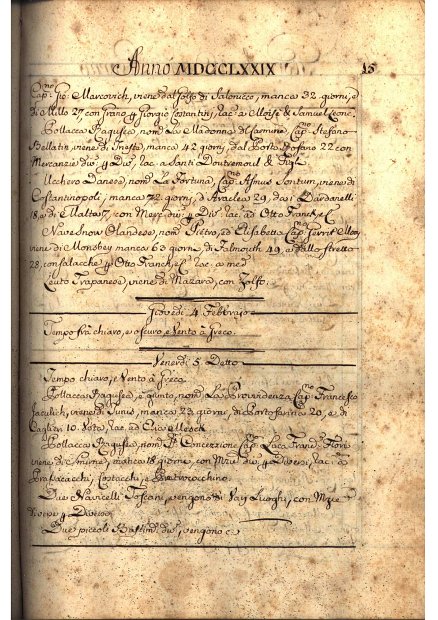 Anno MDCCLXXIX 15
Capno. Gio: Marcovich, viene dal Golfo di Salonicco, manca 32 giorni, e
di Millo 27 con Grano p Giorgio Costantini, lac. a Moise & Samuel Leone.
Pollacca Ragusea nom. La Madonna di Carmine Capno. Stefano
Bellatin, viene di Trieste, manca 42 giorni, dal Porto
Mercanzie dive. p Divi. lac. a Santi
Ucchero Danese, nom. La Fortuna, Capo. viene di
Costantinopoli, manca 72 giorni, d' 29, da i Dardanelli
18, e di Malta 7, con Merce dive. p Divi. lac. ad Otto Franck, e C.
Nave Snow Olandese, nom. Pietro, ed Elisabetta Capo. Gerrit
viene di manca 63 giorni, di Falmouth 49, e dallo stretto
28, con salacche p Otto Franck, e C. lac. a med.
Leuto Trapanese, viene di Mazara, con Zolfo.
Giovedì 4 Febbraio
Tempo frà chiaro, e oscuro, e Vento à Greco.
Venerdì 5 Detto
Tempo chiaro, e Vento à Greco
Pollacca Ragusea, è giunta, nom. La Providenza Capno. Francesco
viene di Tunis, manca 23 giorni, di Portofarina 20, e di
Cagliari 10. Voto, lac. ad
Pollacca Ragusea, nom. La Concezzione Capo. Luca
viene di Smirne, manca 18 giorni, con Mzie. div. p Diversi, lac. a
Due Navicelli Toscani, vengono di Varj Luoghi, con Mzie
diverse p Diversi.
Due piccoli Bastimti. divi. vengono c.